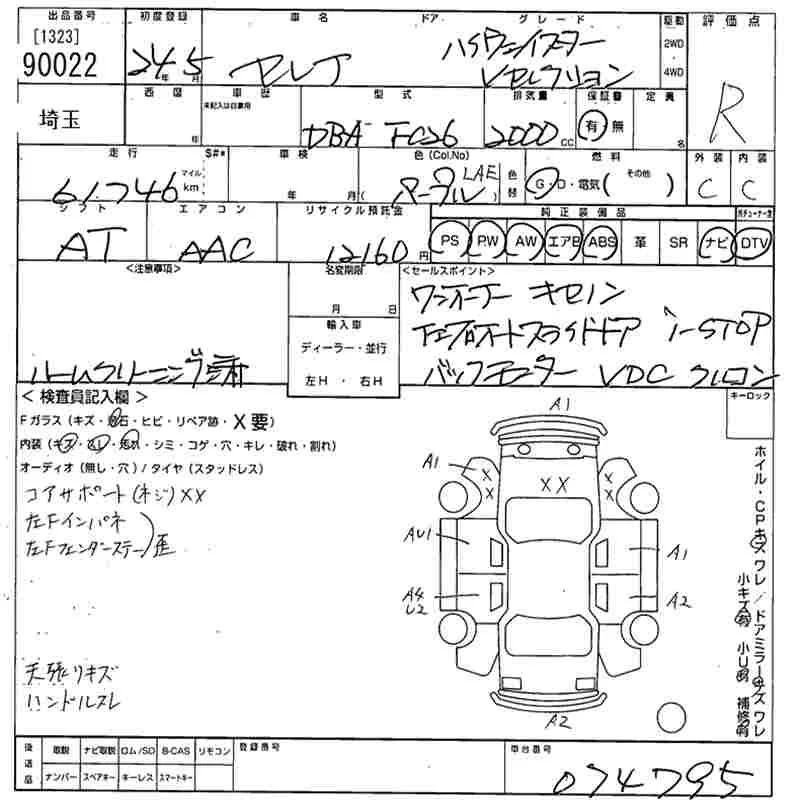 出品番号 初度登録 車名 ドア グレード 駆動 評価点
[1323]
90022
24年5月 セレナ ハイウェイスター
Vセレクション
2WD
4WD
R
埼玉
西国 年
車歴
未記入は自家用
型式
DBA FC26
排気量
2000 cc
保証書
有 無
定員
名
走行
61746
マイル
km
S#*
車検
年 月
色 (Col.No)
(パール LAE)
色替
燃料
G・D・電気 ( その他 )
外装 内装
C C
シフト エアコン リサイクル預託金 純正装備品 地デジチューナー
AT AAC 12160円
PS PW AW エアB ABS 革 SR ナビ DTV
<注意事項>
ルームクリーニング済
名変期限
月 日
輸入車
ディーラー・並行
左H ・ 右H
<セールスポイント>
ワンオーナー キセノン
i-STOP
バックモニター VDC クルコン
キーロック
< 検査員記入欄 >
Fガラス (キズ・飛石・ヒビ・リペア跡・X要)
内装 (キズ・スレ・汚れ・シミ・コゲ・穴・キレ・破れ・割れ)
オーディオ (無し・穴) / タイヤ (スタッドレス)
コアサポート (ネジ) XX
左Fインパネ
左Fフェンダーステー
歪
天張リキズ
ハンドルスレ
A1
A1
X X
X X
X X
AU1
A1
A4
U2
A2
A2
ホイル・CPキズワレ / ドアミラーキズワレ
小キズ有 小U有 補修有
後送品
取説 ナビ取説 ロム/SD B-CAS リモコン
ナンバー スペアキー キーレス スマートキー
登録番号
車台番号
074795